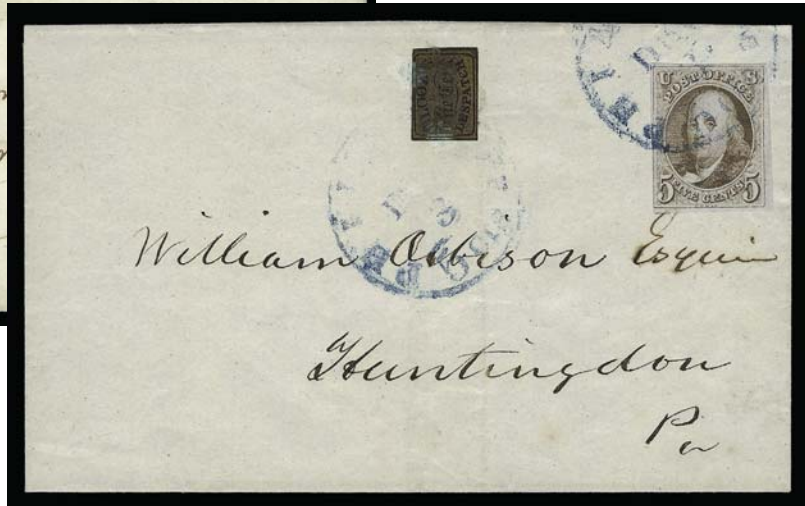 DESPATCH
U S
POST OFFICE
5 FIVE CENTS 5
William Orbison Esquire
Huntingdon
Pa